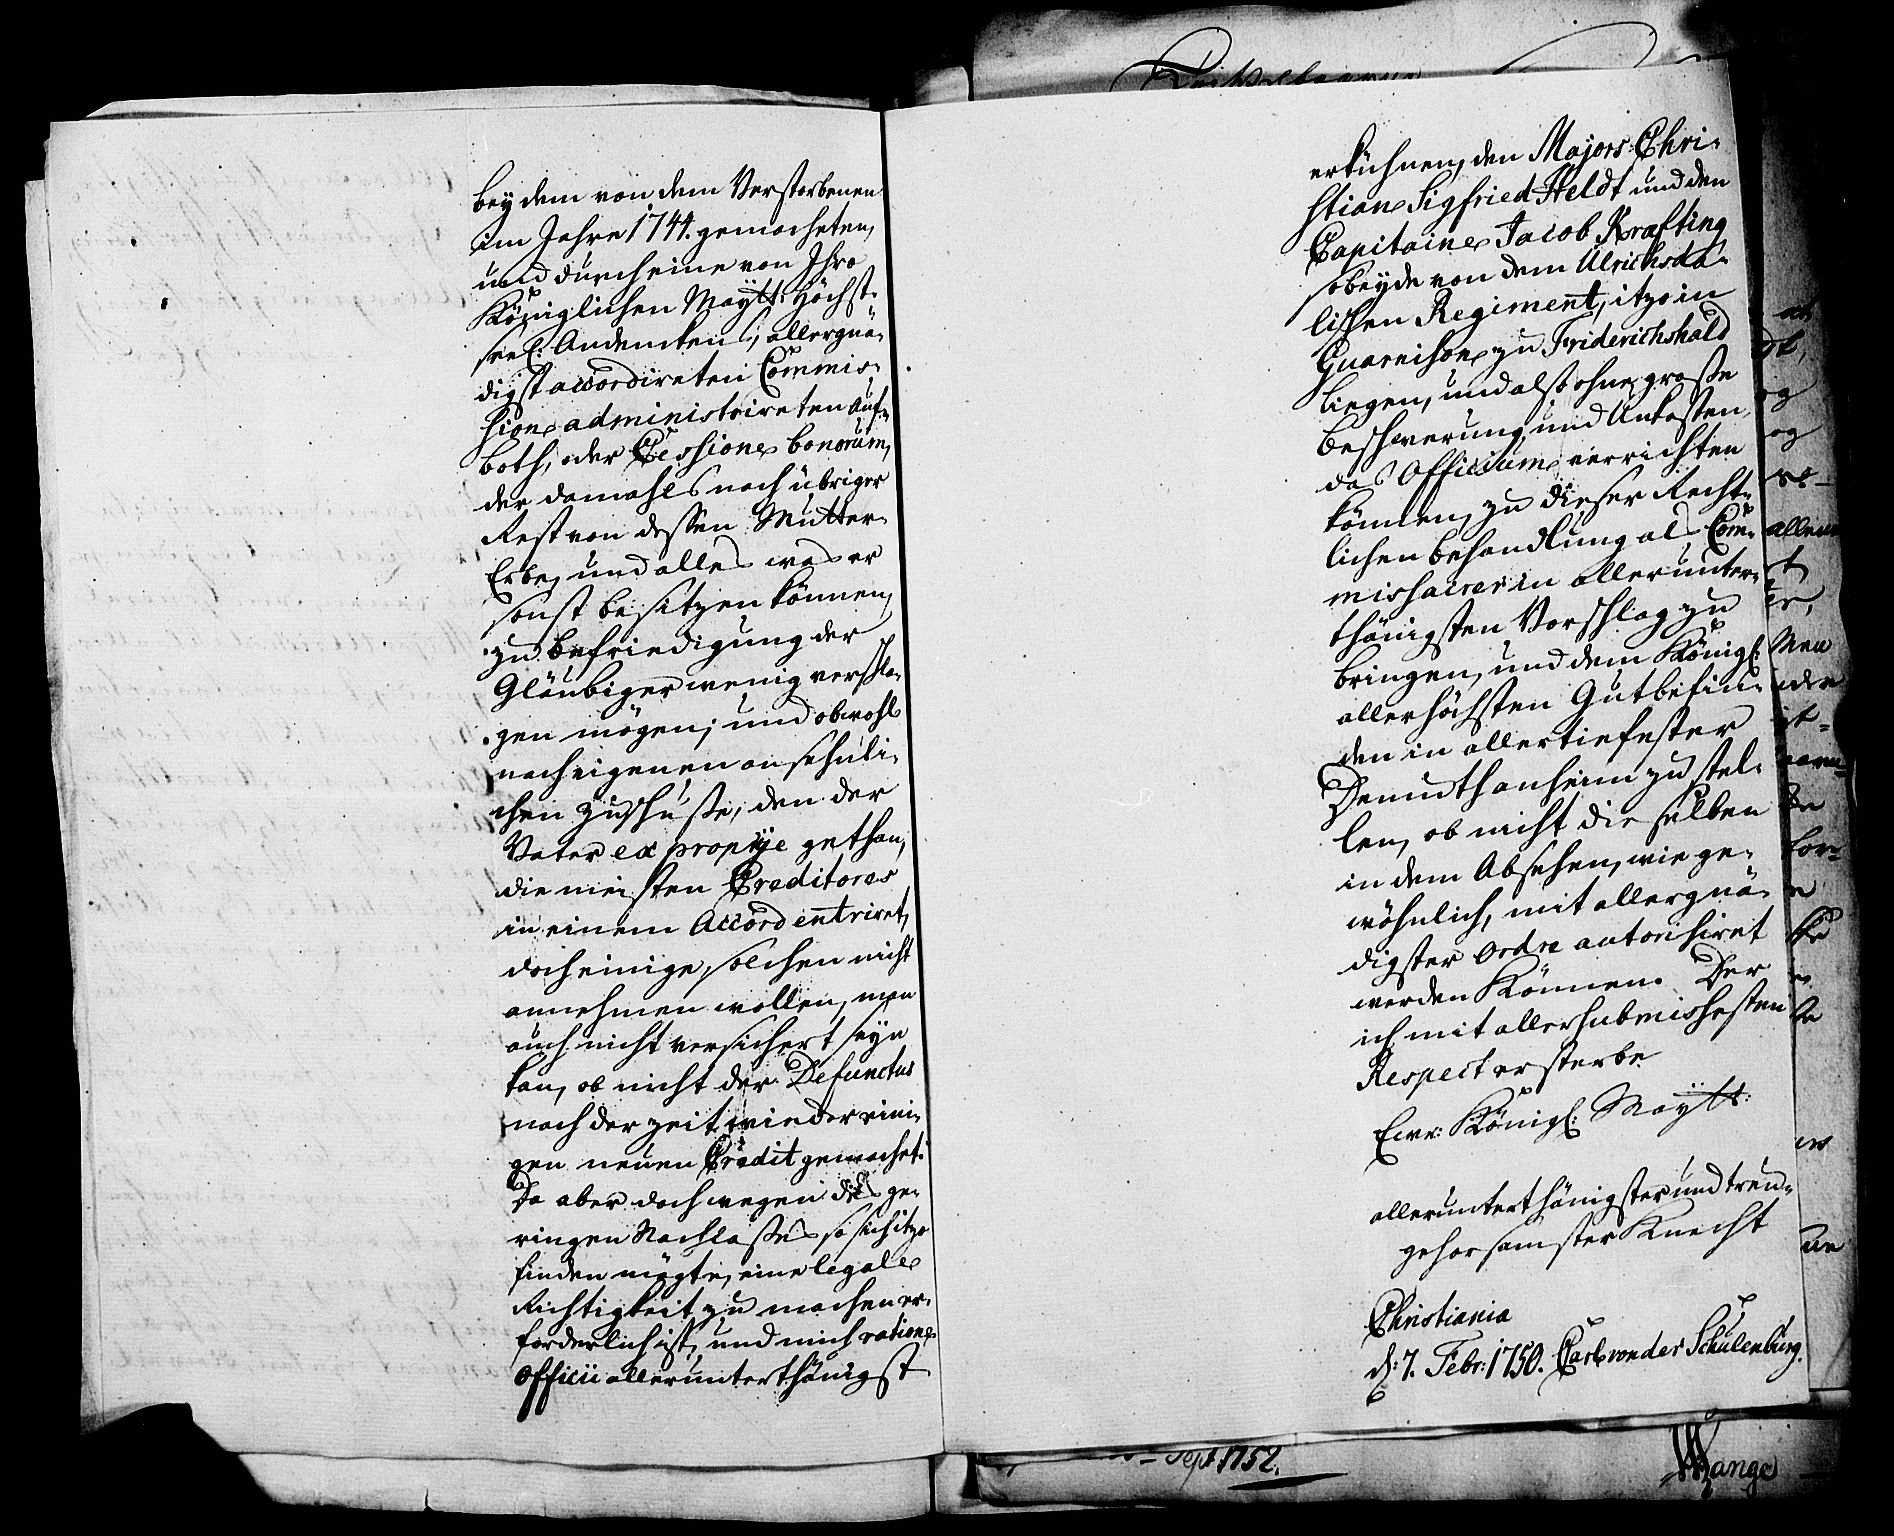 bey dem von dem Verstorbenen
im Jahre 1744. gemacheten,
und durch eine von Ihro
Königlichen Maÿtt: Höchst-
seel: Andencken, allergnä-
digst accordireten Commis-
sion administrireten Auf-
both, oder Cessione bonorum,
der damahls nach übriger
Rest von dessen Mutter-
Erbe, und alles was er
sonst besitzen können,
zu befriedigung der
Gläubiger wenig verschla-
gen mögen; und obwohl
nach eigenen ansehnli-
chen Zuschuße, den der
Vater ex proprije gethan,
die meisten Creditores
in einem Accord entriret,
doch einige solchen nicht
annehmen wollen, man
auch nicht versichert seyn
kan, ob nicht der Defunctus
nach der zeit wieder eini-
gen neuen Credit gemachet.
Da aber doch wegen des ge-
ringen Nachlaßes so sich itzo
finden mögte, eine legale
Richtigkeit zu machen er-
forderlich ist, und mich ratione
Officii allerunterthänigst
erkühnen, den Majors Chri-
stian Sigfried Heldt und den
Capitaine Jacob Krafting
so beyde von dem Ulrichsda-
lischen Regiment, itzo in
Guarnison zu Friderichshald
liegen, und also ohne große
beschwerung und Unkosten
das Officium verrichten
können, zu dieser Recht-
lichen behandlung als Com-
missairer in allerunter-
thänigsten Vorschlag zu
bringen, und dem Königl:
allerhöchsten Gutbefin-
den in allertiefester
Demuth anheim zu stel-
len, ob nicht die selben
in dem Absehen, wie ge-
wöhnlich, mit allergnä-
digster Ordre autorisiret
werden Können. Der
ich mit allersubmissesten
Respect ersterbe
Ewr: Königl: Maÿtt:
allerunterthänigster und treu-
gehorsamster Knecht
Christiania
d: 7. Febr: 1750. Carl von der Schulenburg.
Sept 1752.
Mange